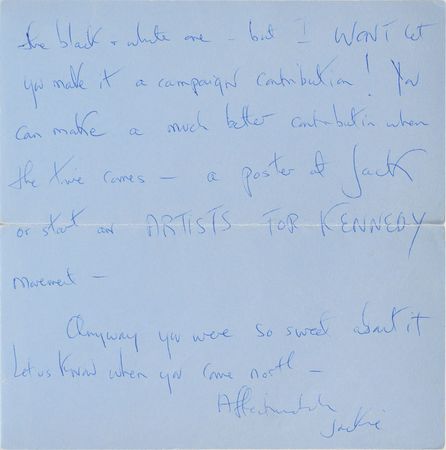 the black + white one - but I WON'T let
you make it a campaign contribution! You
can make a much better contribution when
the time comes — a poster of Jack
or start an ARTISTS FOR KENNEDY
movement —
Anyway you were so sweet about it
Let us know when you come north —
Affectionately
Jackie